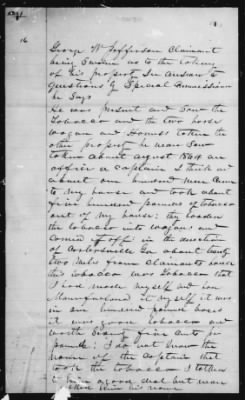 16
George W Jefferson Claimant
being Sworn as to the taking
of his property In answer to
questions by Special Commissioner
he says
He was present and Saw the
Tobacco and the two horse
Wagon and Harness taken the
other property he never Saw
taken about august 1864 an
officer a captain I think and
about one hundred men came
to my house and took about
five hundred pounds of tobacco
out of my house: they loaded
the tobacco into wagons and
carried it off in the direction
of
two miles from claimants house
this tobacco was Tobacco that
I had made myself and
Manufactured it myself it was
in one hundred pound boxes
it was good tobacco and
worth Seventy five cents pr
pound; I do not know the
name of the captain that
took the tobacco I talked
to him a good deal but never
his name